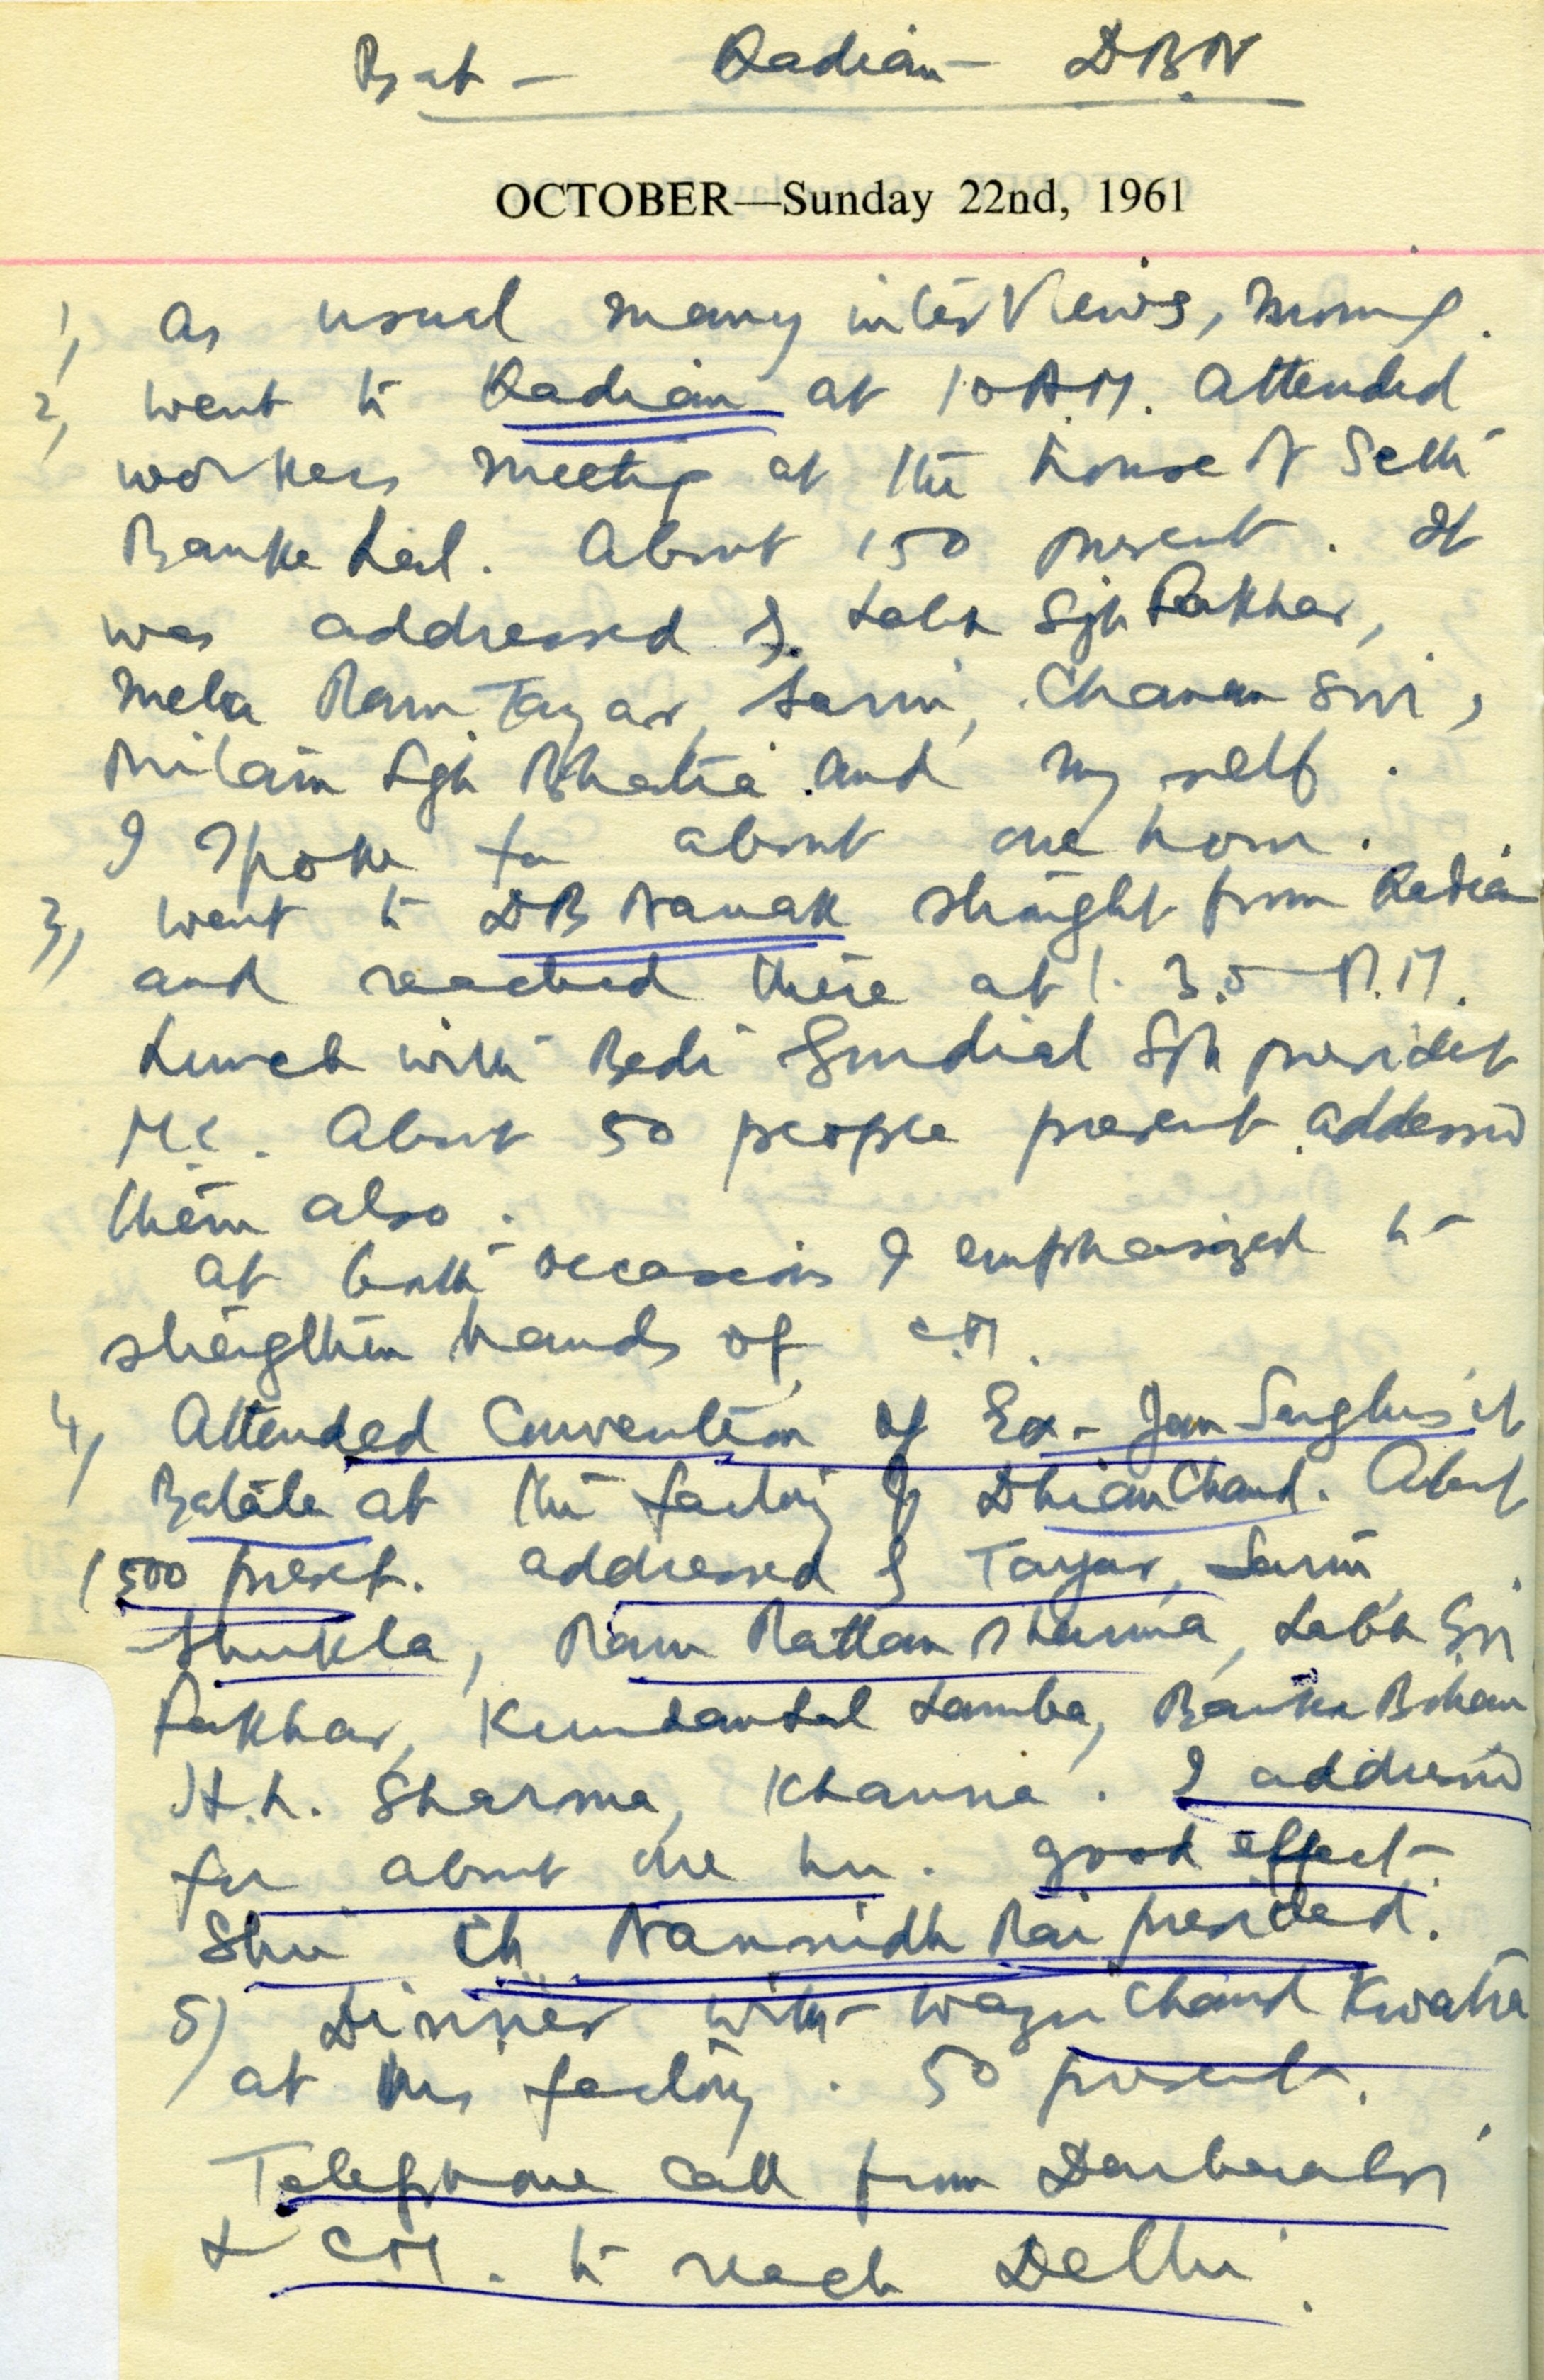 Bat - Qadian - DBN
OCTOBER—Sunday 22nd, 1961
1, As usual many interviews, morning.
2, Went to Qadian at 10 A.M. Attended
workers meeting at the house of Seth
Banke Lal. About 150 present. It
was addressed by Labh Sgh Fakhar,
Mela Ram Tayar, Sarin, Chanan
Pritam Sgh Bhatia and my self.
I spoke for about one hour.
3, Went to DB Nanak straight from Qadian
and reached there at 1.30 P.M.
Lunch with Bedi Gurdial Sgh president
M.C. About 50 people present. addressed
them also.
At both occasions I emphasized to
strengthen hands of C.M.
4, Attended Convention of Ex-Jan Sanghis at
Batala at the factory of Dhian Chand. About
1500 present. addressed by Tayar, Sarin
Shukla, Ram Rattan Sharma, Labh
Fakhar, Kundan Lal Lamba, Banke Behari
H.L. Sharma, Khanna. I addressed
for about one hr. good effect.
Shri Ch Naunidh Rai presided.
5) Dinner with Wazir Chand Kwatra
at his factory. 50 present.
Telephone call from
& CM. to reach Delhi.